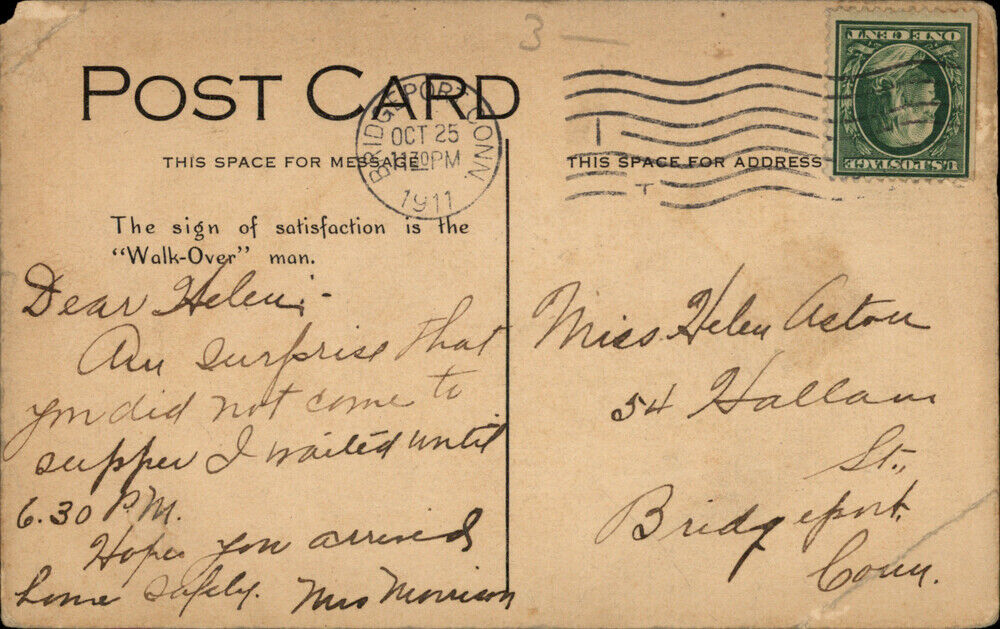 3 —
POST CARD
BRIDGEPORT CONN.
OCT 25
11 30 PM
1911
THIS SPACE FOR MESSAGE
The sign of satisfaction is the
"Walk-Over" man.
Dear Helen:-
Am surprise that
you did not come to
supper I waited until
6.30 P.M.
Hope you arrived
home safely. Mrs Morrison
THIS SPACE FOR ADDRESS
U.S. POSTAGE
ONE CENT
Miss Helen Aston
54 Hallam
St.,
Bridgeport,
Conn.